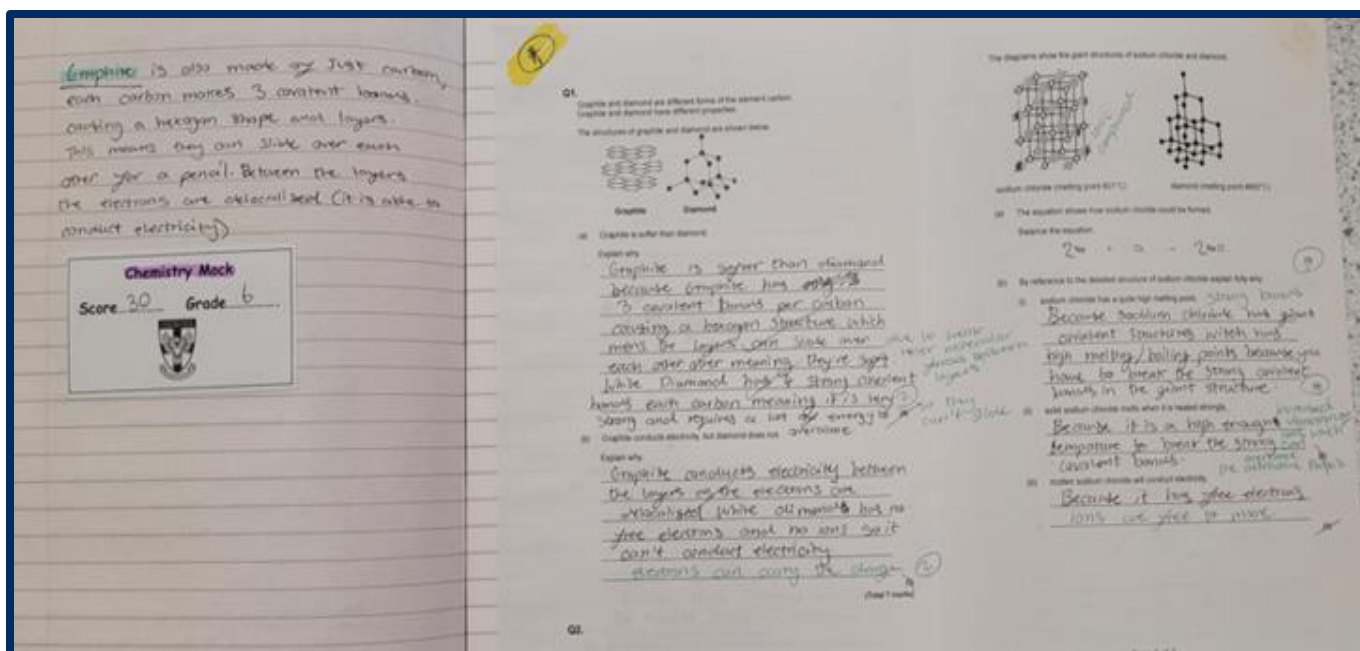 Graphite is also made of Just carbon,
each carbon makes 3 covalent bonds.
causing a hexagon shape and layers.
This means they can slide over each
other for a pencil. Between the layers
the electrons are delocalised (it is able to
conduct electricity)
Chemistry Mock
Score 30 Grade 6
Q1.
Graphite and diamond are different forms of the element carbon.
Graphite and diamond have different properties.
The structures of graphite and diamond are shown below.
Graphite Diamond
(a) Graphite is softer than diamond.
Explain why.
Graphite is softer than diamand
because Graphite has
3 covalent bonds per carbon
causing a hexagon structure which
means the layers can slide over
each other after meaning they're soft
While Diamond has 4 strong covalent
bonds each carbon meaning it is very
strong and requires a lot of energy to
overcome
due to weak
inter molecular
forces between
layers
so they
can't slide
(b) Graphite conducts electricity, but diamond does not.
Explain why.
Graphite conducts electricity between
the layers as the electrons are
delocalised while has no
free electrons and no ions so it
can't conduct electricity
electrons can carry the charge
(Total 7 marks)
Q2.
The diagrams show the giant structures of sodium chloride and diamond.
ionic
compound
sodium chloride (melting point 801°C) diamond (melting point
(a) The equation shows how sodium chloride could be formed.
Balance the equation.
(b) By reference to the detailed structure of sodium chloride explain fully why:
(i) sodium chloride has a quite high melting point,
strong bonds
Because sodium chloride has giant
covalent structures witch has
high melting/boiling points because you
have to break the strong covalent
bonds in the giant structure.
(ii) solid sodium chloride melts when it is heated strongly,
Because it is a high enough
tempature to break the strong
covalent bonds.
increased
overcome
the attractive forces
(iii) molten sodium chloride will conduct electricity.
Because it has free electrons
ions are free to move